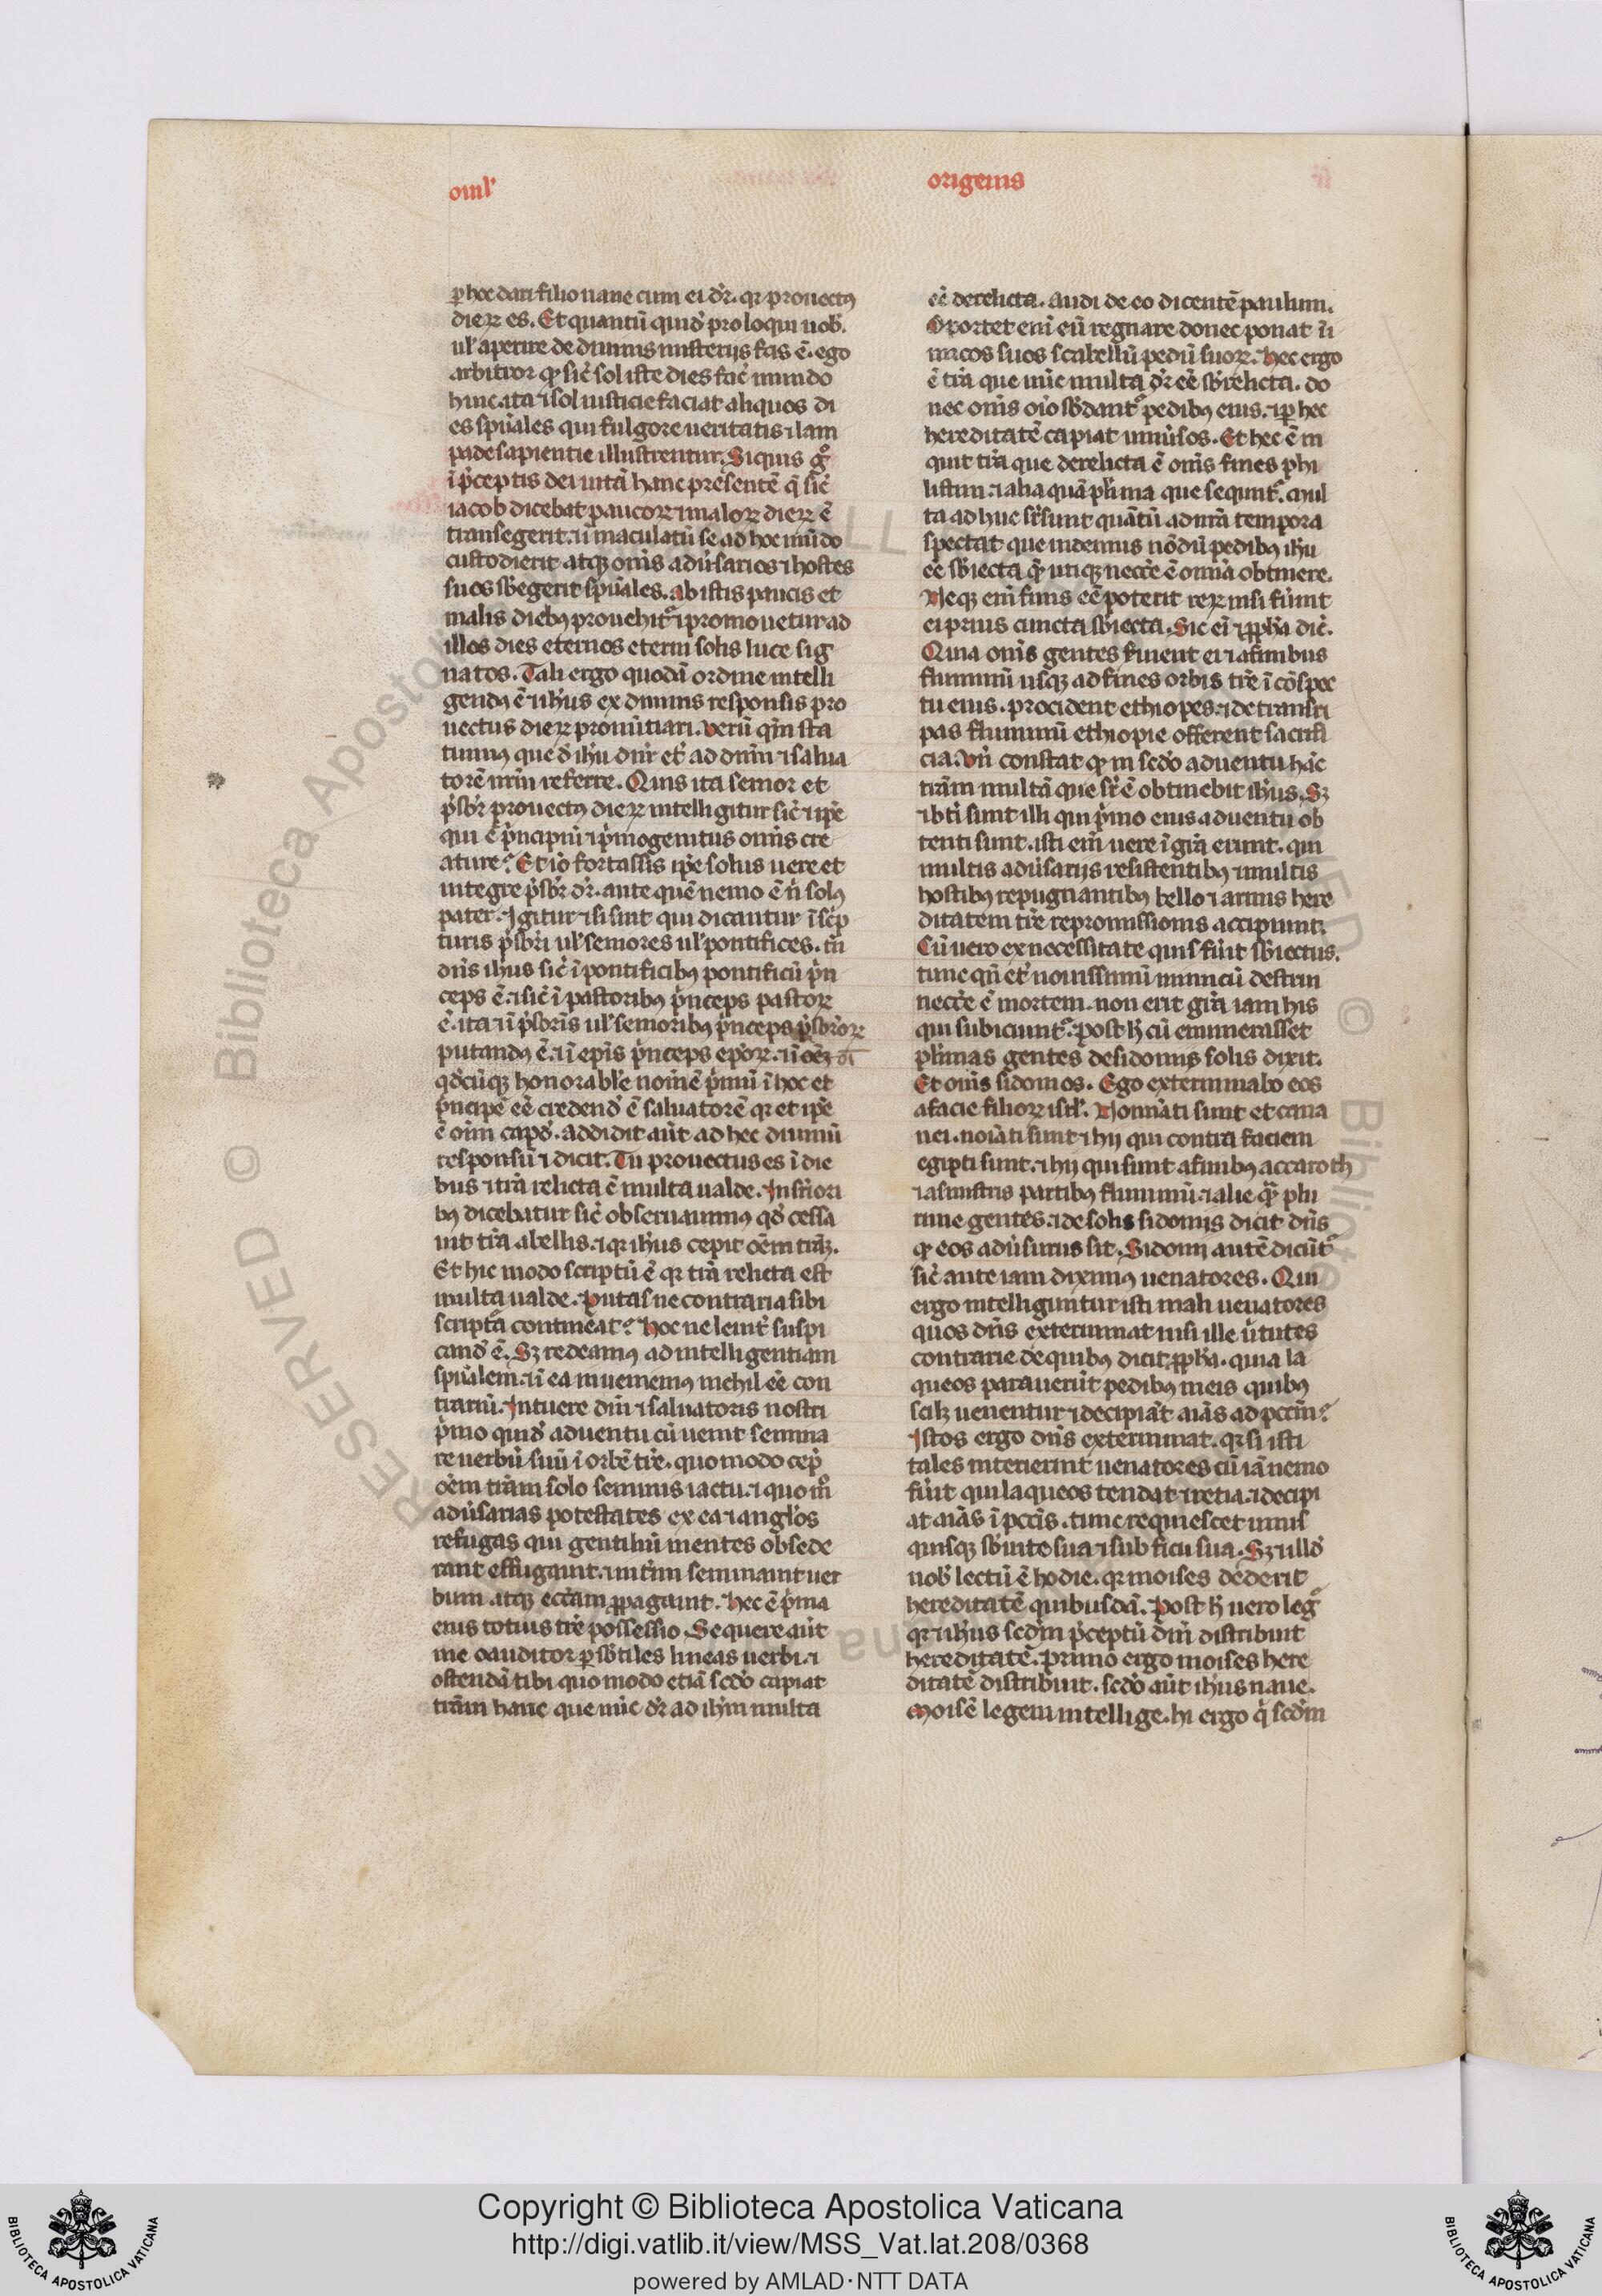 oml'
origenis
ꝑ hoc dari filio naue cum ei dr̄. qr prouectꝰ
dieꝝ es. Et quantū quidē proloqui nob̄.
ul' aperire de diuinis misterijs fas ē. ego
arbitror ꝙ sic̄ sol iste dies fac̄ mundo
huic. ita ⁊ sol iusticie faciat aliquos di
es spūales qui fulgore ueritatis ⁊ lam
pade sapientie illustrentur. Siquis gͦ
ī p̄ceptis dei uitā hanc presentē q̄ sic̄
iacob dicebat paucoꝝ ⁊ maloꝝ dieꝝ ē
transegerit. ⁊ īmaculatū se ab hoc mūdo
custodierit atqꝫ om̄s aduersarios ⁊ hostes
suos sb̄egerit spūales. ab istis paucis et
malis diebꝰ prouehit᷑ ⁊ promouetur ad
illos dies eternos eterni solis luce sig
natos. Tali ergo quodā ordine intelli
gendꝰ ē ⁊ ih̄us ex diuinis responsis pro
uectus dieꝝ pronūtiari. Verū qm̄ sta
tuimꝰ que d̄ ih̄u dn̄r et̄ ad dn̄m ⁊ salua
torē nr̄m referre. Quis ita senior et
p̄sbr̄ prouectꝰ dieꝝ intelligitur sic̄ ⁊ ip̄e
qui ē p̄ncipiū ⁊ p̄mogenitus om̄is cre
ature? Et iō fortassis ip̄e solus uere et
integre p̄sbr̄ dr̄. ante quē nemo ē n̄ solꝰ
pater. Igitur ⁊ si sint qui dicantur ī sc̄p
turis p̄sbr̄i ul' seniores ul' pontifices. tn̄
dn̄s ih̄us sic̄ ī pontificibꝰ pontificū p̄n
ceps ē. ⁊ sic̄ ī pastoribꝰ p̄nceps pastoꝝ
ē. ita ⁊ ī p̄sbr̄is ul' senioribꝰ p̄nceps p̄sbr̄oꝝ
putandꝰ ē. ⁊ ī ep̄is p̄nceps ep̄oꝝ. ⁊ ī
qd̄cūqꝫ honorabl'e nom̄e p̄mū ī hoc et
p̄ncipē eē credend̄ ē saluatorē qr et ip̄e
ē oīm capd̄. addidit aūt ad hec diuinū
responsū ⁊ dicit. Tu prouectus es ī die
bus ⁊ tr̄a relicta ē multa ualde. In suꝑiori
bꝰ dicebatur sic̄ obseruauimꝰ qd̄ cessa
uit tr̄a a bellis. ⁊ qr ih̄us cepit oēm trāꝫ.
Et hic modo scriptū ē qr tr̄a relicta est
multa ualde. Putas ne contraria sibi
scriptā contineāt? Hoc ne leuit̄ suspi
cand̄ ē. Sꝫ redeamꝰ ad intelligentiam
spūalem. ⁊ ī ea inueniemꝰ nichil eē con
trariū. Intuere dn̄i ⁊ saluatoris nostri
p̄mo quid̄ aduentu cū uenit semina
re uerbū suū ī orbē tr̄e. quo modo cep̄
oēm tr̄am solo seminis iactu. ⁊ quo mͦ
adūsarias potestates ex ea ⁊ angl'os
refugas qui gentiliū mentes obsede
rant effugauit. ⁊ int̄im seminauit uer
bum atqꝫ ecc̄am ꝓpagauit. Hec ē p̄ma
eius totius tr̄e possessio. Sequere aūt
me o auditor ꝑ sb̄tiles lineas uerbi. ⁊
ostendā tibi quo modo etiā scd̄o capiat
tr̄am hanc que nūc dr̄ ad ih̄m multa
eē derelicta. Audi de eo dicentē paulum.
Oportet eni eū regnare donec ponat īi
micos suos scabellū pedū suoꝝ. Hec ergo
ē tr̄a que nūc multa dr̄ eē sb̄relicta. do
nec om̄s oīo sb̄dant᷑ pedibꝰ eius. ⁊ ꝑ hec
hereditatē capiat uniūsos. Et hec ē in
quit tr̄a que derelicta ē om̄s fines phi
listin. ⁊ alia quā pl̄ima que sequnt᷑. mul
ta adhuc sr̄sunt quātū ad nr̄a tempora
spectat que uidemus nōdū pedibꝰ ih̄u
eē sb̄iecta q̄ utiqꝫ necc̄e ē om̄ia obtinere.
Neqꝫ eni finis eē poterit reꝝ nisi fūint
ei prius cuncta sb̄iecta. Sic ei ⁊ ꝓph̄a dic̄.
Quia om̄s gentes seruient ei ⁊ a finibus
fluminū usqꝫ ad fines orbis tr̄e ī cōspec
tu eius. procident ethiopes. ⁊ de trans ri
pas fluminū ethiopie offerent sacrifi
cia. Vn̄ constat ꝙ in scd̄o aduentu hāc
tr̄am multā que sr̄ ē obtinebit ih̄us. Sꝫ
⁊ bt̄i sunt illi qui p̄mo eius aduentu ob
tenti sunt. isti eni uere ī gr̄a erunt. qui
multis adūsarijs resistentibꝰ ⁊ multis
hostibꝰ repugnantibꝰ bello ⁊ armis here
ditatem tr̄e repromissionis accipiunt.
Cū uero ex necessitate quis fūit sb̄iectus.
tunc qn̄ et̄ nouissimū inimicū destrui
necc̄e ē mortem. non erit gr̄a iam his
qui subiciunt᷑. Post h̄ cū enumerasset
pl̄imas gentes de sidoniis solis dixit.
Et om̄s sidonios. Ego exterminabo eos
a facie filioꝝ isrl'. Noīati sunt et cana
nei. noīati sunt ⁊ hij qui contra faciem
egipti sunt. ⁊ hij qui sunt a finibꝰ accaroth
⁊ a sinistris partibꝰ fluminū. ⁊ alie q̄ plu
rime gentes. ⁊ de solis sidonijs dicit dn̄s
ꝙ eos adūsurus sit. Sidonij autē dicūt᷑
sic̄ ante iam diximꝰ uenatores. Qui
ergo intelliguntur isti mali uenatores
quos dn̄s exterminat nisi ille ūtutes
contrarie de quibꝰ dicit ꝓph̄a. quia la
queos parauerūt pedibꝰ meis quibꝰ
scilꝫ uenentur ⁊ decipiāt aīas ad pcc̄m?
Istos ergo dn̄s exterminat. qr si isti
tales interierint uenatores cū iā nemo
fūit qui laqueos tendat ⁊ retia. ⁊ decipi
at aīas ī pcc̄is. tunc requiescet unus
quisqꝫ sb̄ uite sua ⁊ sub ficu sua. Sꝫ ⁊ illd̄
nob̄ lectū ē hodie. qr moises dederit
hereditatē quibusdā. Post h̄ uero leg᷑
qr ⁊ ih̄us scd̄m p̄ceptū dn̄i distribuit
hereditatē. Primo ergo moises here
ditatē distribuit. scd̄o aūt ih̄us naue.
Moisē legem intellige. hi ergo q̄ scd̄m
Copyright © Biblioteca Apostolica Vaticana
http://digi.vatlib.it/view/MSS_Vat.lat.208/0368
powered by AMLAD·NTT DATA